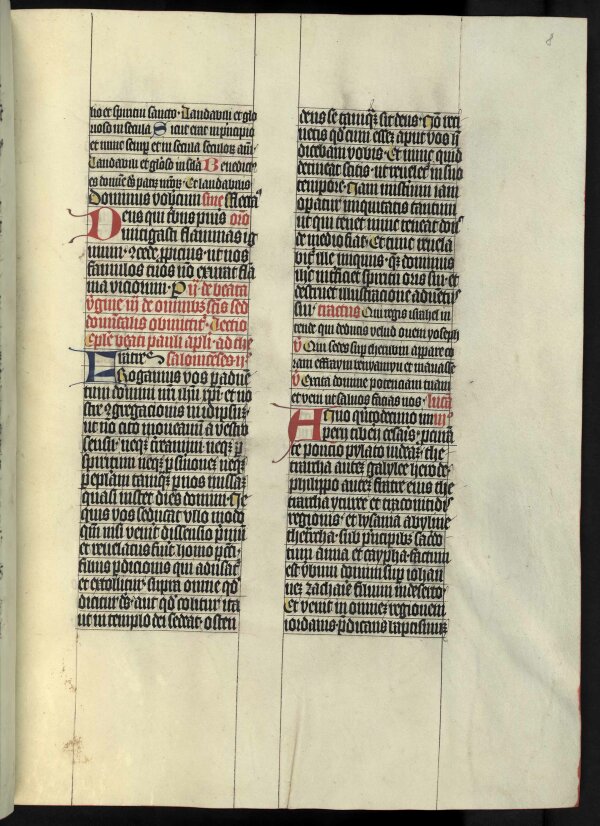 8
tio et spiritui sancto · Laudabili et glo
rioso in secula Sicut erat in principio
et nunc semper et in secula seculorum am̄
Laudabili et glorioso in secula Benedict
es domine deus patrum nostrorum Et laudabilis
Dominus vobiscum sine flecta
Deus qui tribus pueris oro
mitigasti flammas ig
nium · concede propicius · ut nos
famulos tuos non exurat fla
ma viciorum · P ij de beata
virgine iij de omnibus sanctis sed
dominicalis obmittitur · Lectio
epistole beati pauli apostoli · ad the
Fratres salonicenses ij
Rogamus vos per aduen
tum domini nostri ihesu xpi · et no
stre congregacionis in idipsum
ut non cito moueamini a vestro
sensu · neque terreamini neque per
spiritum neque per sermonem neque
per epistolam tamquam per nos missam
quasi instet dies domini · Ne
quis vos seducat vllo modo
quoniam nisi venerit dissensio primum
et reuelatus fuerit homo peccati
filius perdicionis qui aduersatur
et extollitur · supra omne quod
dicitur deus · aut quod colitur ita
ut in templo dei sedeat · osten
dens se tamquam sit deus · Non reti
netis quod cum essem aput vos hec
dicebam vobis · Et nunc quid
detineat scitis · ut reueletur in suo
tempore · Nam misterium iam
operatur iniquitatis tantum
ut qui tenet nunc teneat don
de medio fiat · Et tunc reuela
bitur ille iniquus · quem dominus
ihesus interficiet spiritu oris sui · et
destruet illustracione aduentus
sui · tractus Qui regis israhel in
tende qui deducis velud ouem yoseph
V Qui sedes super cherubim appare co
ram effraym beniamyn et manasse
V Excita domine potenciam tuam
et veni ut saluos facias nos · luca
Anno quintodecimo im iij
perii tiberii cesaris · procuran
te poncio pylato iudeam · the
trarcha autem galylee herode ·
philippo autem fratre eius the
trarcha yturee et traconitidis
regionis · et lysania abyline
thetrarcha · sub principibus sacerdo
tum anna et caypha · factum
est verbum domini super iohan
nem zacharie filium in deserto ·
Et venit in omnem regionem
iordanis predicans baptismum